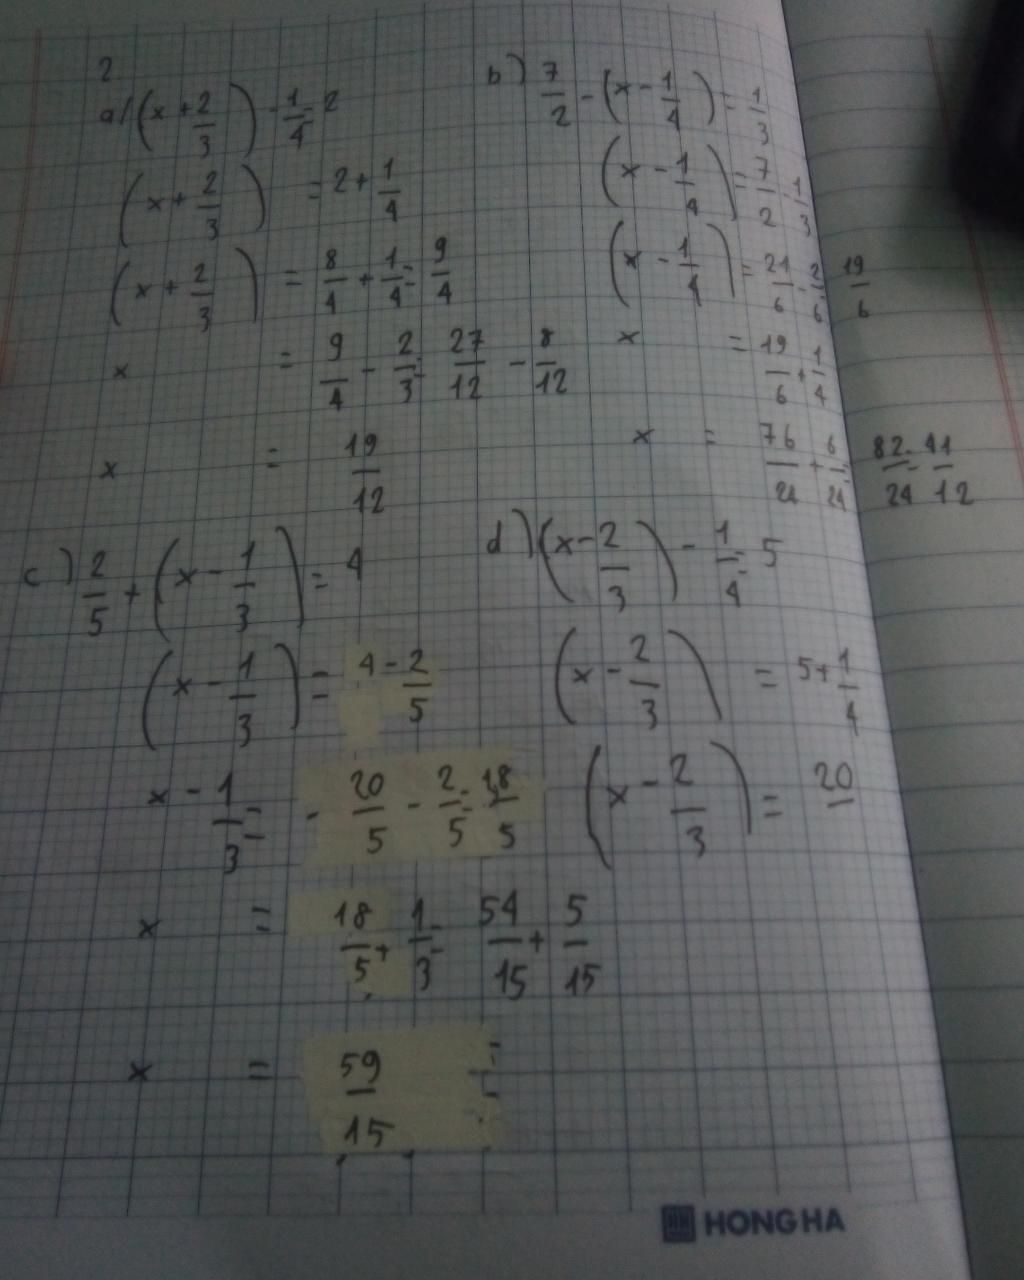 2
a/ (x + 2/3) - 1/4 = 2
(x + 2/3) = 2 + 1/4
(x + 2/3) = 8/4 + 1/4 = 9/4
x = 9/4 - 2/3 = 27/12 - 8/12
x = 19/12
b) 7/2 - (x - 1/4) = 1/3
(x - 1/4) = 7/2 - 1/3
(x - 1/4) = 21/6 - 2/6 = 19/6
x = 19/6 + 1/4
x = 76/24 + 6/24 = 82/24 = 41/12
c) 2/5 + (x - 1/3) = 4
(x - 1/3) = 4 - 2/5
x - 1/3 = 20/5 - 2/5 = 18/5
x = 18/5 + 1/3 = 54/15 + 5/15
x = 59/15
d) (x - 2/3) - 1/4 = 5
(x - 2/3) = 5 + 1/4
(x - 2/3) = 20
HONG HA